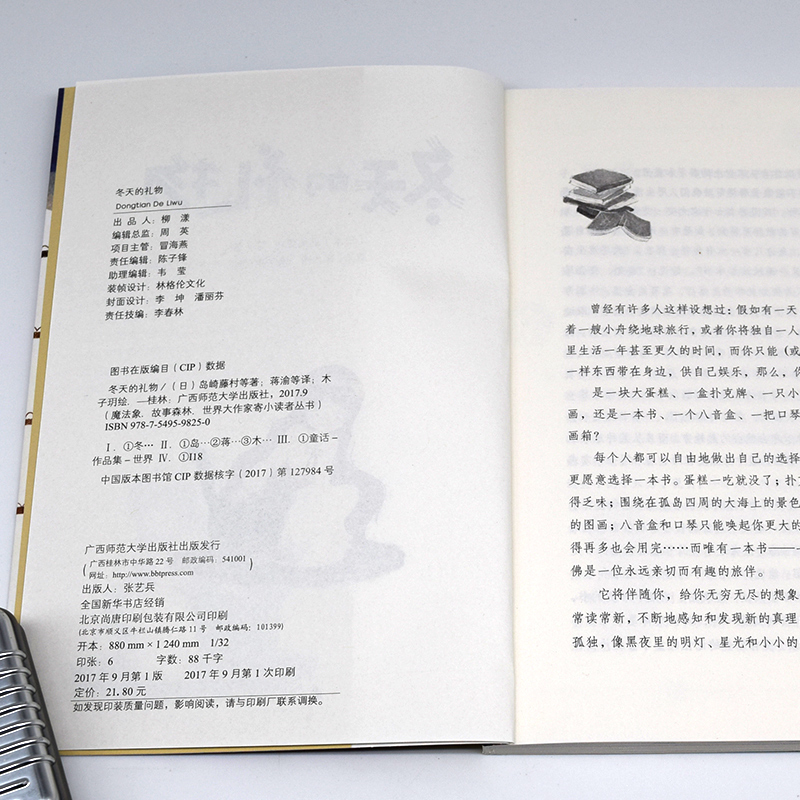 冬天的礼物
Dongtian De Liwu
出 品 人：柳　漾
编辑总监：周　英
项目主管：冒海燕
责任编辑：陈子锋
助理编辑：韦　莹
装帧设计：林格伦文化
封面设计：李　坤　潘丽芬
责任技编：李春林
图书在版编目（CIP）数据
冬天的礼物／（日）岛崎藤村等著；蒋渝等译；木
子玥绘. —桂林：广西师范大学出版社，2017.9
（魔法象. 故事森林. 世界大作家寄小读者丛书）
ISBN 978-7-5495-9825-0
Ⅰ. ①冬… Ⅱ. ①岛…②蒋…③木… Ⅲ. ①童话－
作品集－世界 Ⅳ. ①I18
中国版本图书馆 CIP 数据核字（2017）第 127984 号
广西师范大学出版社出版发行
（广西桂林市中华路 22 号　邮政编码：541001
网址：http://www.bbtpress.com）
出版人：张艺兵
全国新华书店经销
北京尚唐印刷包装有限公司印刷
（北京市顺义区牛栏山镇腾仁路 11 号　邮政编码：101399）
开本：880 mm × 1 240 mm　1/32
印张：6　　字数：88 千字
2017 年 9 月第 1 版　2017 年 9 月第 1 次印刷
定价：21. 80 元
如发现印装质量问题，影响阅读，请与印刷厂联系调换。
曾经有许多人这样设想过：假如有一天
着一艘小舟绕地球旅行，或者你将独自一人
里生活一年甚至更久的时间，而你只能（或
一样东西带在身边，供自己娱乐，那么，你
是一块大蛋糕、一盒扑克牌、一只小
画，还是一本书、一个八音盒、一把口琴
画箱？
每个人都可以自由地做出自己的选择
更愿意选择一本书。蛋糕一吃就没了；扑克
得乏味；围绕在孤岛四周的大海上的景色
的图画；八音盒和口琴只能唤起你更大的
得再多也会用完……而唯有一本书——
佛是一位永远亲切而有趣的旅伴。
它将伴随你，给你无穷无尽的想象
常读常新，不断地感知和发现新的真理
孤独，像黑夜里的明灯、星光和小小的